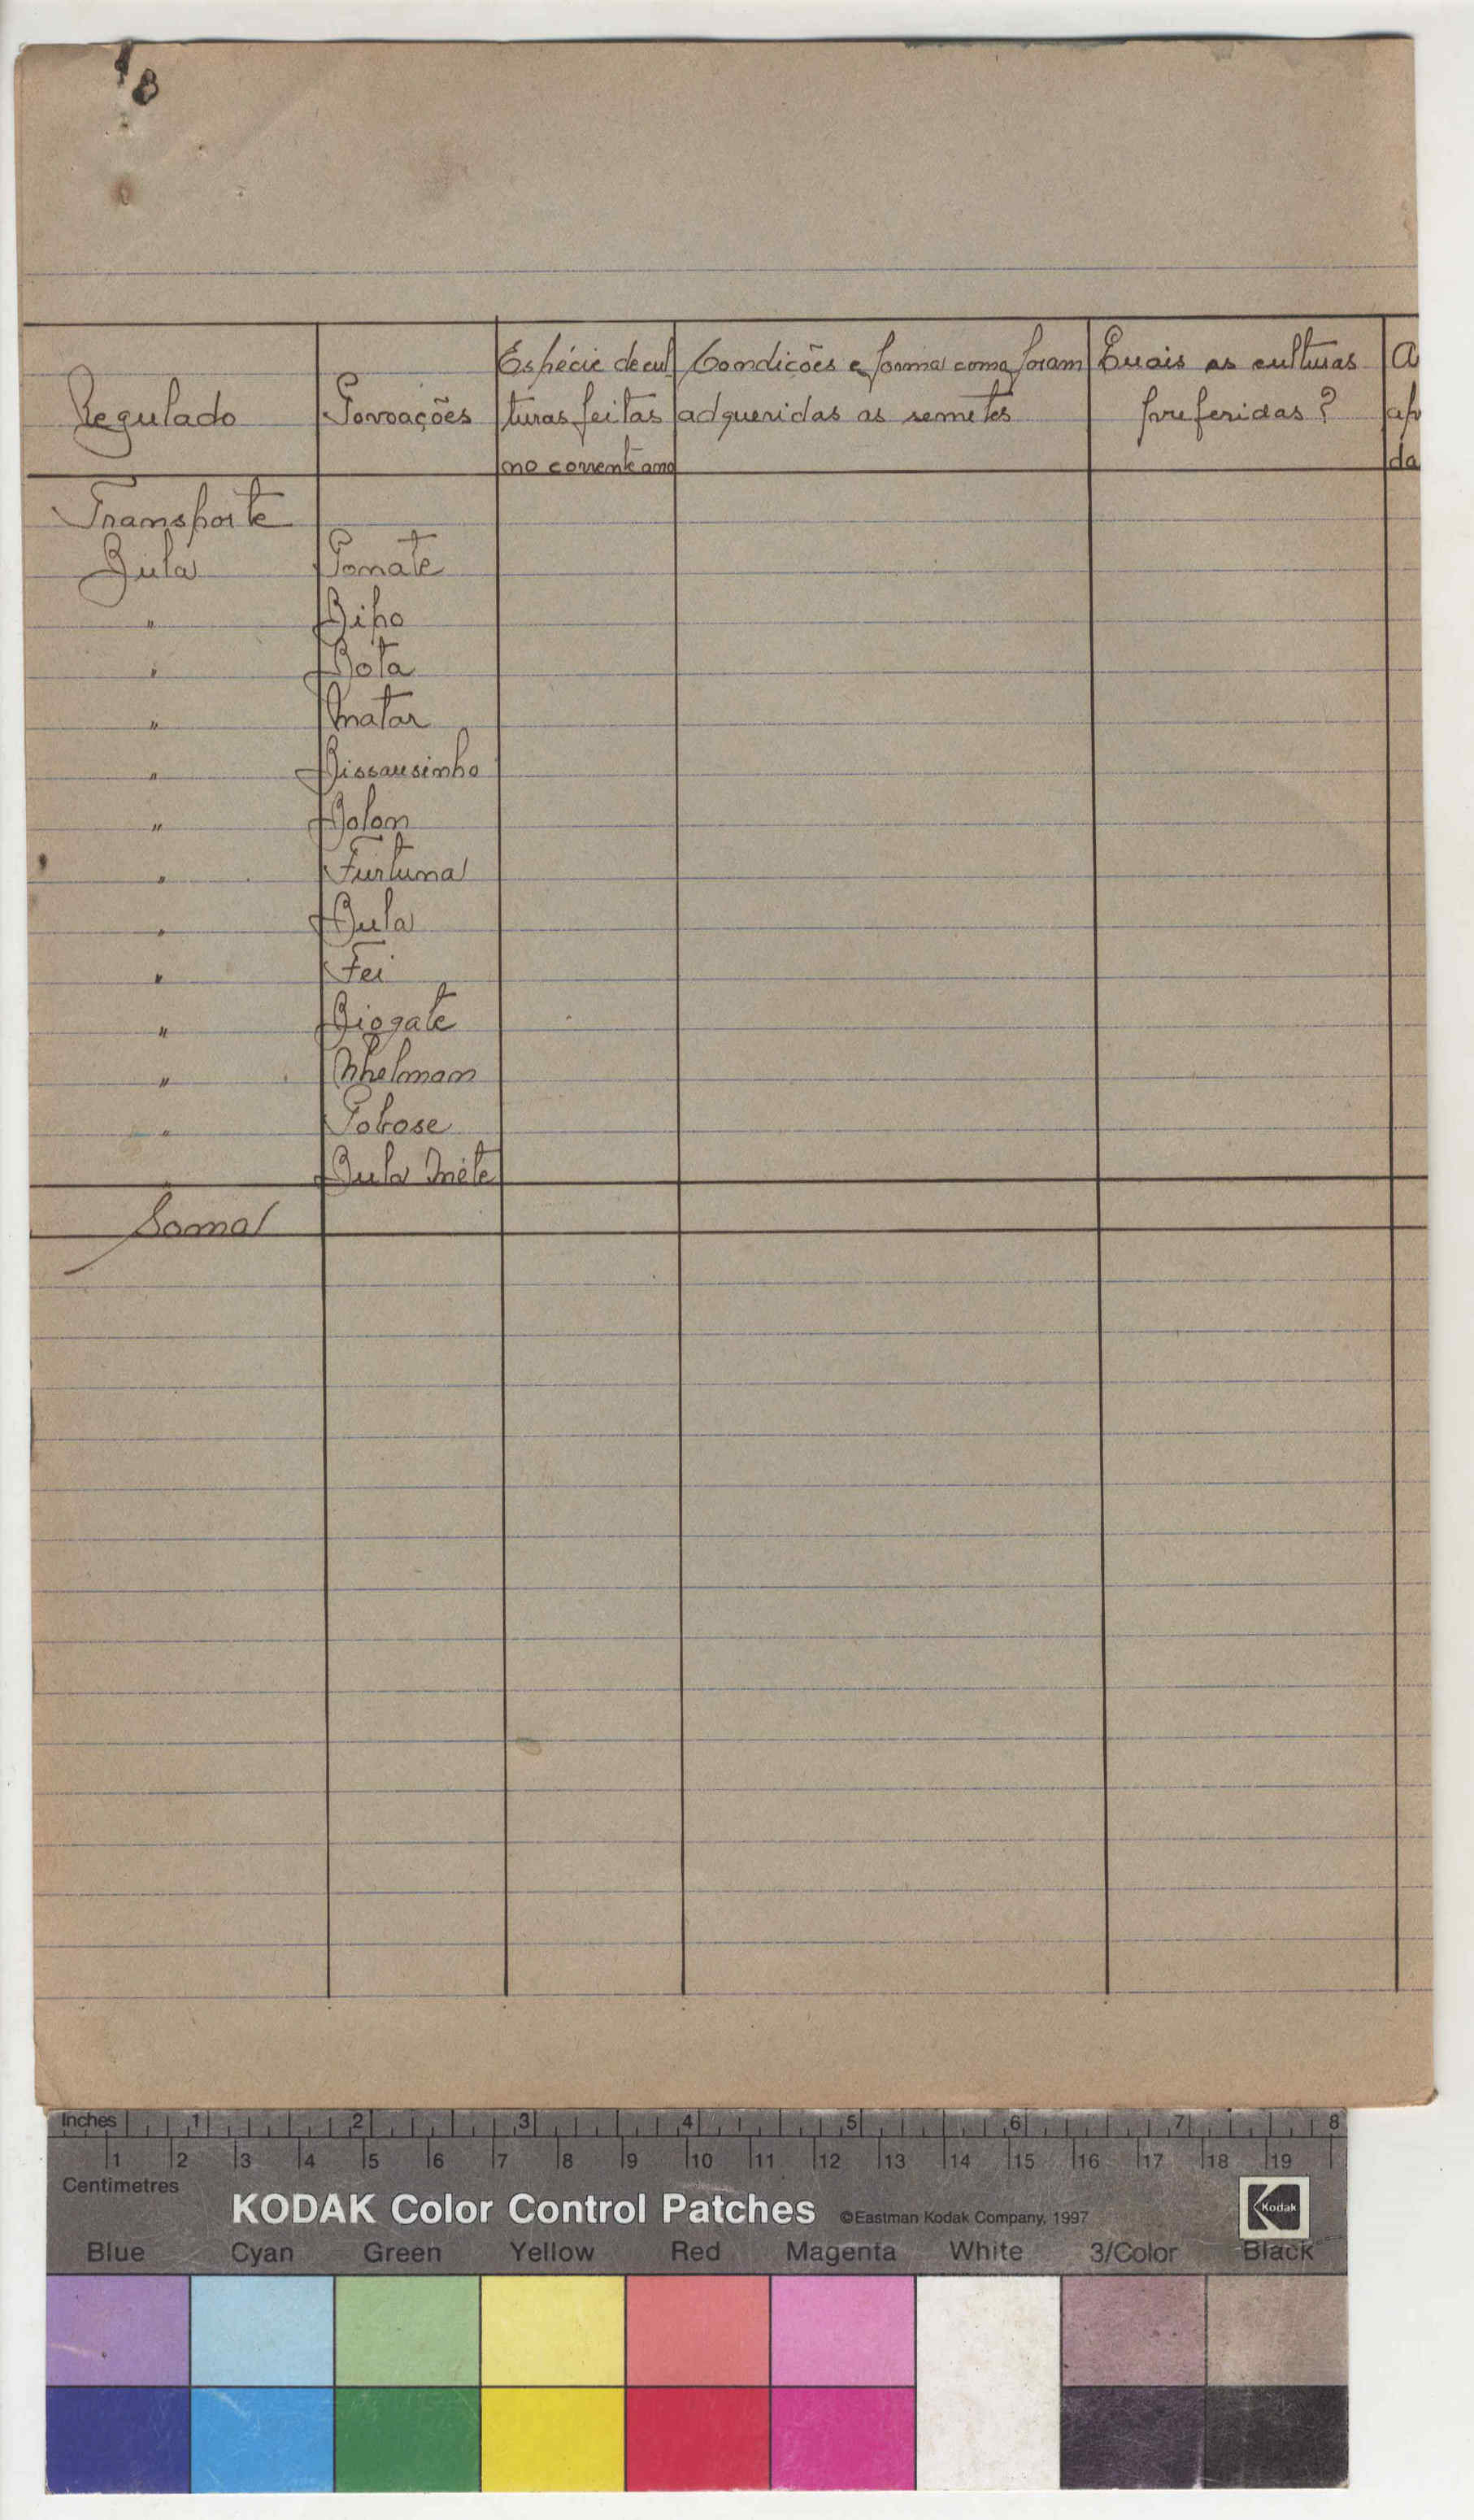 18
Regulado Povoações Espécie de cul- Condicões e forma como foram Quais as culturas A
turas feitas adqueridas as semetes preferidas? ap
no corrente ano da
Transporte
Bula Ponate
" Bipo
" Bota
" Matar
" Bissausinho
" Bolom
" Furtuna
" Bula
" Fei
" Biogate
" Nhelman
" Pobose
" Bula Mète
Soma
Inches 1 2 3 4 5 6 7 8
1 2 3 4 5 6 7 8 9 10 11 12 13 14 15 16 17 18 19
Centimetres
KODAK Color Control Patches ©Eastman Kodak Company, 1997 Kodak
Blue Cyan Green Yellow Red Magenta White 3/Color Black